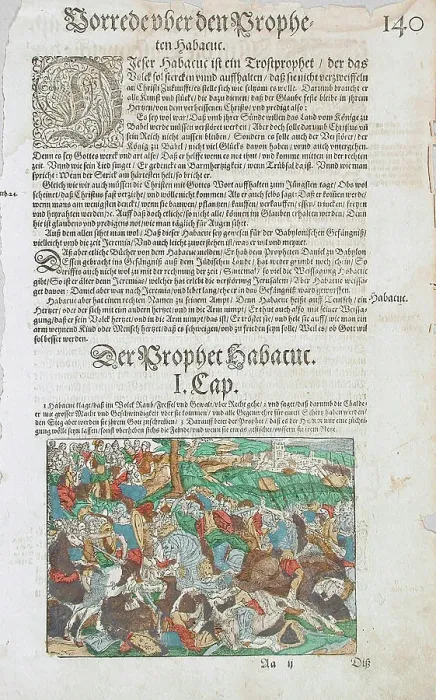 Vorrede vber den Prophe-
ten Habacuc.
140
Dieser Habacuc ist ein Trostprophet / der das
Volck sol stercken vnnd auffhalten / daß sie nicht verzweiffeln
an Christi Zukunfft / es stelle sich wie seltzam es wolle. Darumb braucht er
alle Kunst vnd stücke / die dazu dienen / daß der Glaube feste bleibe in jhrem
Hertzen / von dem verheissenen Christo / vnd predigt also:
Es sey wol war / Daß vmb jhrer Sünde willen das Land vom Könige zu
Babel werde müssen verstöret werden / Aber doch solle darumb Christus vnd
sein Reich nicht aussen bleiben / Sondern es solle auch der Verstörer / der
König zu Babel / nicht viel Glücks davon haben / vnnd auch vntergehen.
Denn es sey Gottes werck vnd art also / Daß er helffe wenn es not thut / vnd komme mitten in der rechten
zeit. Vnnd wie sein Lied singet / Er gedenckt an Barmhertzigkeit / wenn Trübsal da ist. Vnnd wie man
spricht: Wenn der Strick am härtesten helt / so bricht er.
Gleich wie wir auch müssen die Christen mit Gottes Wort auffhalten zum Jüngsten tage / Ob wol
scheinet / daß Christus fast verziehe / vnd wölle nicht kommen / Als er auch selbs saget / Daß er kommen werde /
wenn mans am wenigsten denckt / wenn sie bauwen / pflantzen / kauffen / verkauffen / essen / trincken / freyen /
vnd heyrahten werden / rc. Auff daß doch etliche / so nicht alle / können im Glauben erhalten werden / Denn
hie ist glaubens vnd predigens not / wie man täglich für Augen sihet.
Auß dem allen sihet man wol / Daß dieser Habacuc sey gewesen für der Babylonischen Gefängniß /
vielleicht vmb die zeit Jeremia / Vnd auch leicht zuverstehen ist / was er wil vnd meynet.
Daß aber etliche Bücher von dem Habacuc melden / Er hab dem Propheten Daniel zu Babylon
Essen gebracht ins Gefängniß auß dem Jüdischen Lande / hat weder grund noch schein / So
triffts auch nicht wol zu mit der rechnung der zeit / Sintemal / so viel die Weissagung Habacuc
gibt / So ist er älter denn Jeremias / welcher hat erlebt die verstörung Jerusalem / Aber Habacuc weissa-
get davon: Daniel aber war nach Jeremia / vnd lebet lang / ehe er in das Gefängniß ward geworffen.
Habacuc aber hat einen rechten Namen zu seinem Ampt / Denn Habacuc heißt auff Teutsch / ein
Habacuc.
Hertzer / oder der sich mit eim andern hertzet / vnd in die Arm nimpt / Er thut auch also mit seiner Weissa-
gung / daß er sein Volck hertzet / vnd in die Arm nimpt / das ist / Er tröstet sie / vnd helt sie auff / wie man ein
arm weynend Kind oder Mensch hertzet / daß es schweigen / vnd zu frieden seyn solle / Weil es / ob Gott wil
sol besser werden.
Der Prophet Habacuc.
I. Cap.
1 Habacuc klagt / daß im Volck Raub / Freffel vnd Gewalt / vber Recht gehe / 5 vnd sagt / daß darumb die Chalde-
er mit grosser Macht vnd Geschwindigkeit vber sie kommen / vnd alle Gegenwehr für einen Schertz haben werden /
den Sieg aber werden sie jhrem Gott zuschreiben /
Aa ij
Diß